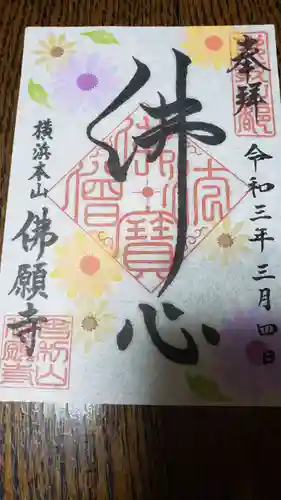 奉拝
令和三年三月四日
佛心
佛法僧寶
横浜本山
佛願寺